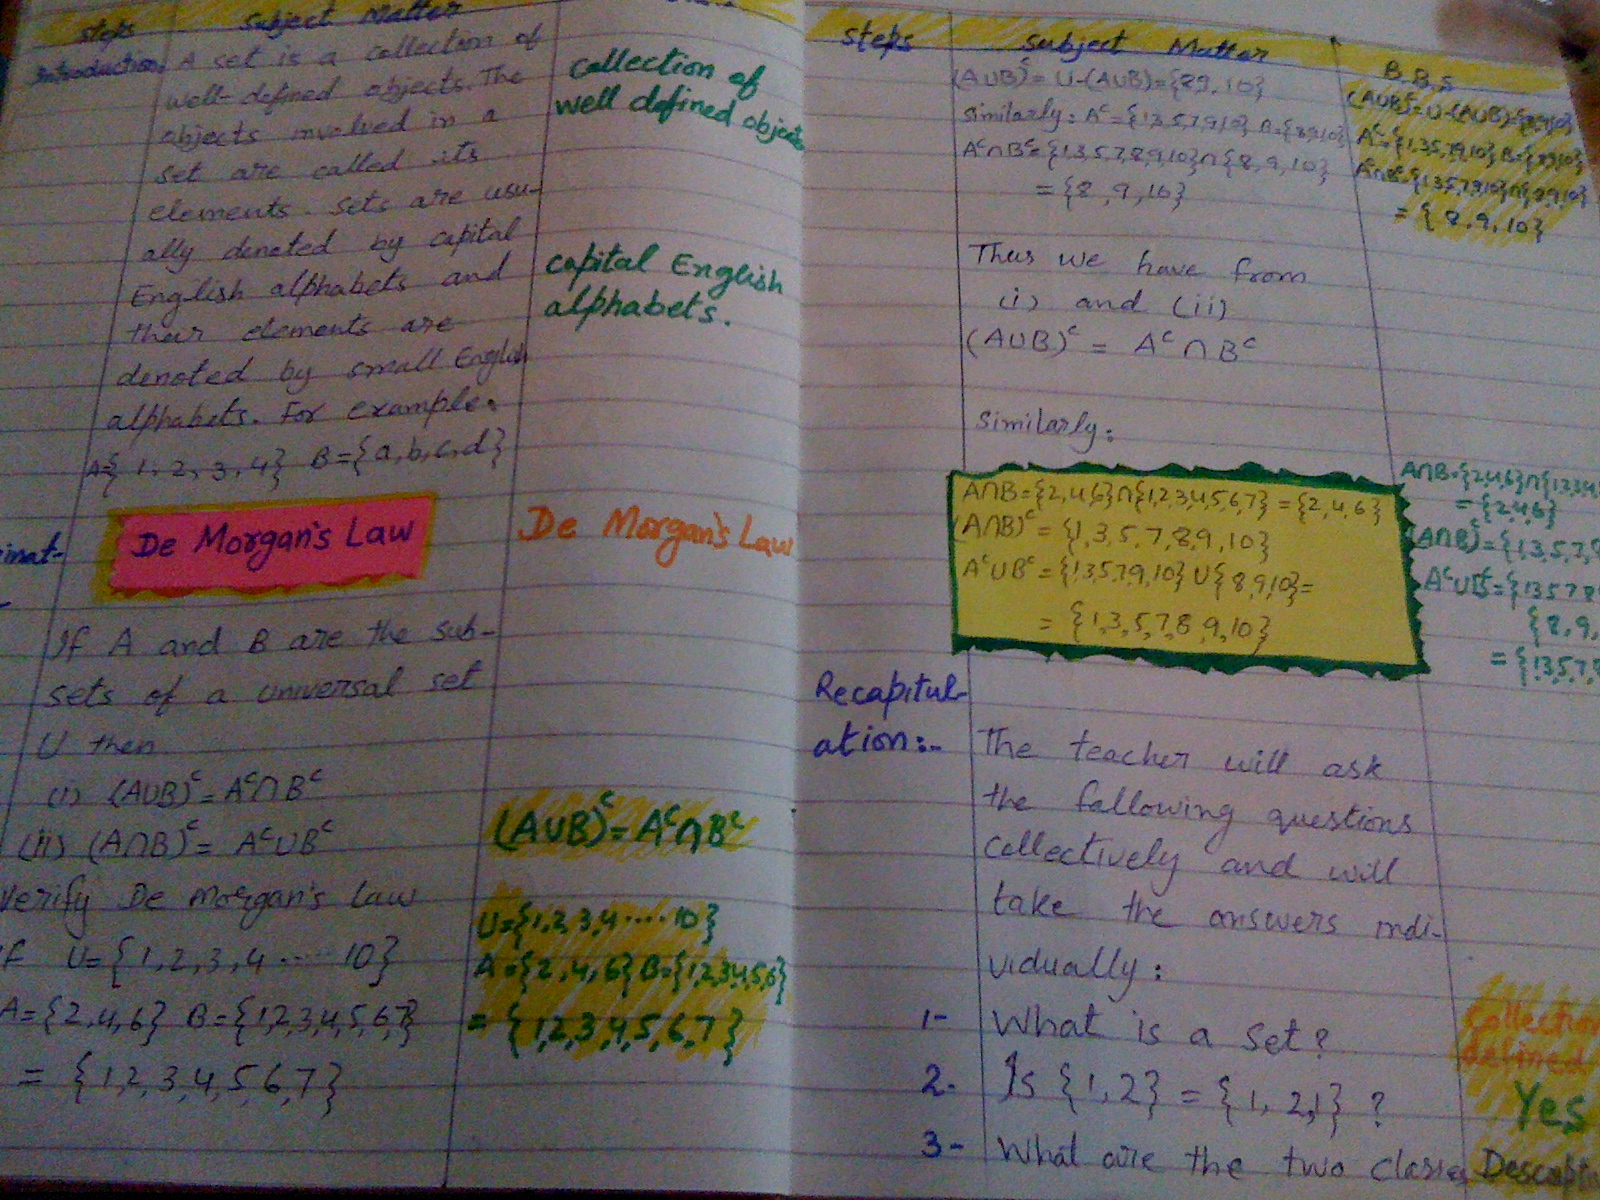 steps subject Matter
Introduction. A set is a collection of
well-defined objects. The
objects involved in a
set are called its
elements. Sets are usu-
ally denoted by capital
English alphabets and
their elements are
denoted by small English
alphabets. For example.
A={ 1, 2, 3, 4} B={a,b,c,d}
inat-
De Morgan's Law
If A and B are the sub-
sets of a universal set
U then
(i) (A∪B)ᶜ= Aᶜ∩Bᶜ
(ii) (A∩B)ᶜ= Aᶜ∪Bᶜ
Verify De Morgan's law
if U={1,2,3,4 ..... 10}
A={2,4,6} B={1,2,3,4,5,6,7}
= {1,2,3,4,5,6,7}
collection of
well defined objects
capital English
alphabets.
De Morgan's Law
(A∪B)ᶜ= Aᶜ∩Bᶜ
U={1,2,3,4 ..... 10}
A={2,4,6} B={1,2,3,4,5,6}
= {1,2,3,4,5,6,7}
steps subject Matter
(A∪B)ᶜ= U-(A∪B)={8,9,10}
similarly: Aᶜ={1,3,5,7,8,9,10} B={8,9,10}
Aᶜ∩Bᶜ={1,3,5,7,8,9,10}∩{8,9,10}
= {8,9,10}
Thus we have from
(i) and (ii)
(A∪B)ᶜ = Aᶜ∩Bᶜ
Similarly:
A∩B={2,4,6}∩{1,2,3,4,5,6,7} = {2,4,6}
(A∩B)ᶜ= {1,3,5,7,8,9,10}
Aᶜ∪Bᶜ={1,3,5,7,9,10} ∪{8,9,10}=
= {1,3,5,7,8,9,10}
Recapitul-
ation:- The teacher will ask
the following questions
collectively and will
take the answers indi-
vidually:
1- What is a set?
2- Is {1,2} = {1,2,1} ?
3- What are the two classes
B.B.S
(A∪B)ᶜ=U-(A∪B)={8,9,10}
Aᶜ={1,3,5,7,9,10} B={8,9,10}
Aᶜ∩Bᶜ={1,3,5,7,9,10}∩{8,9,10}
= {8,9,10}
A∩B={2,4,6}∩{1,2,3,4
= {2,4,6}
(A∩B)ᶜ={1,3,5,7,8
Aᶜ∪Bᶜ={1,3,5,7,8
{8,9,
={1,3,5,7,8
collection
defined
Yes